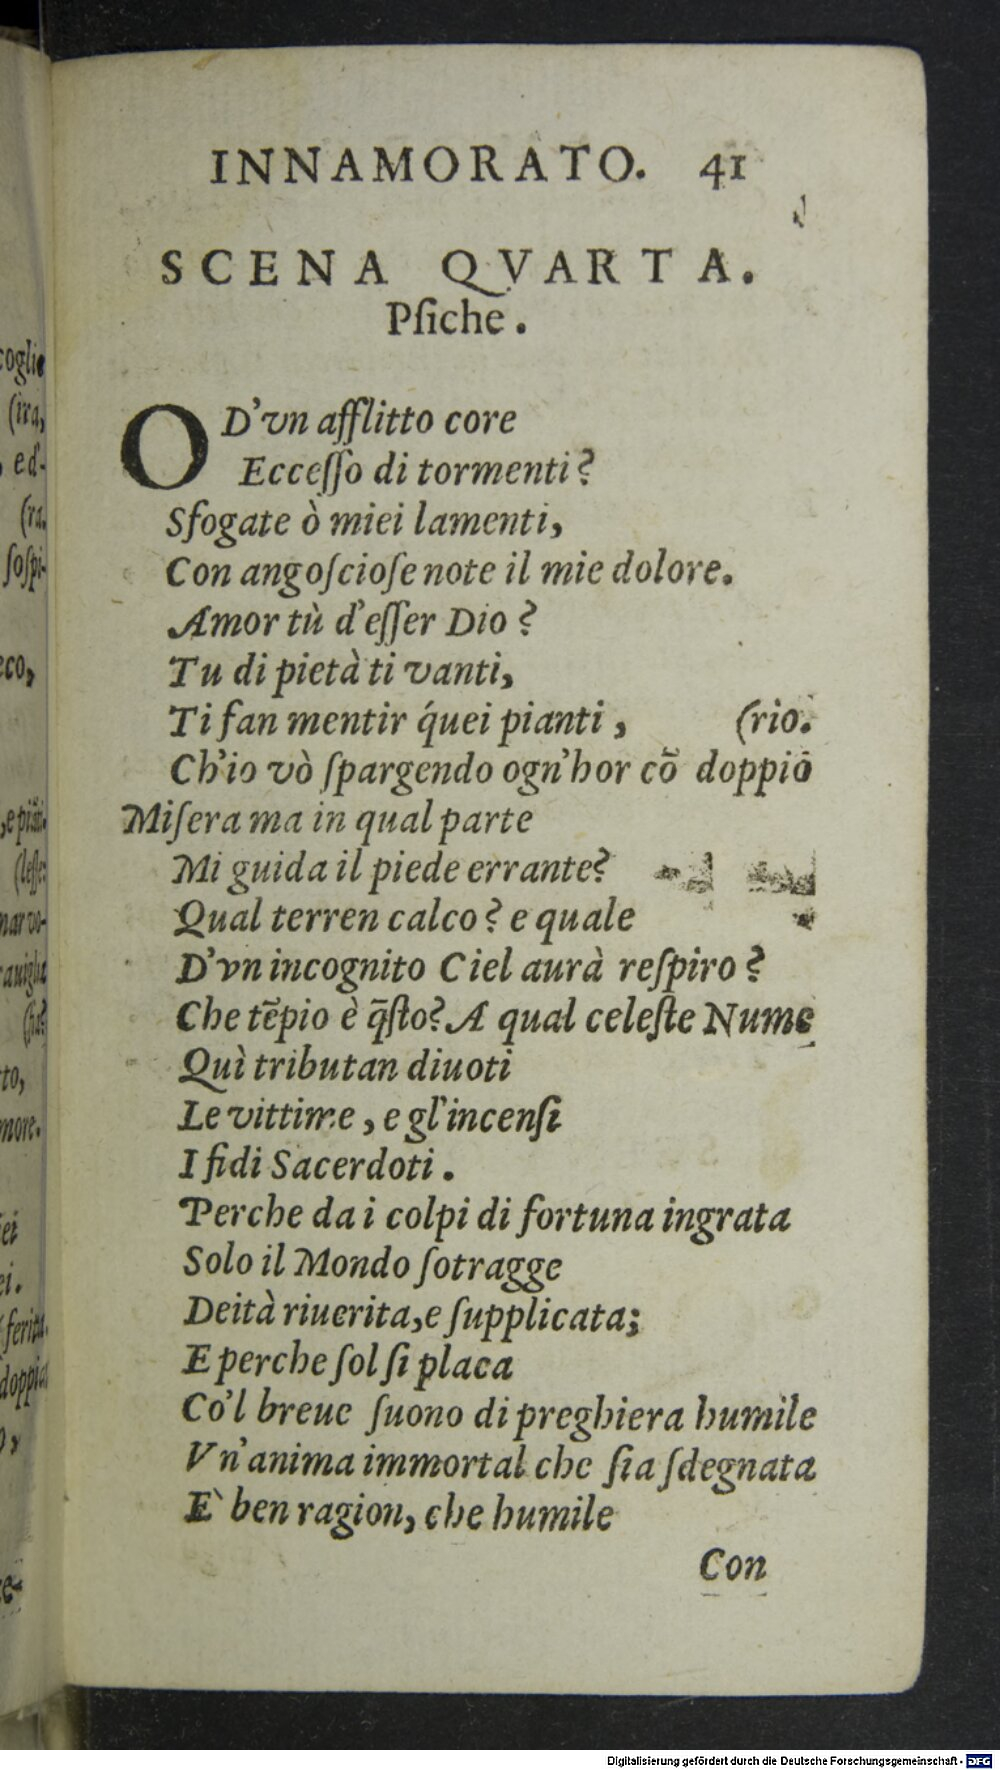 INNAMORATO. 41
SCENA QVARTA.
Pſiche.
O D'vn afflitto core
Ecceſſo di tormenti?
Sfogate ò miei lamenti,
Con angoſcioſe note il mie dolore.
Amor tù d'eſſer Dio?
Tu di pietà ti vanti,
Ti fan mentir q́uei pianti, (rio.
Ch'io vò ſpargendo ogn'hor cō doppiō
Miſera ma in qual parte
Mi guida il piede errante?
Qual terren calco? e quale
D'vn incognito Ciel aurà reſpiro?
Che tēpio è q̄ſto? A qual celeſte Nume
Quì tributan diuoti
Le vittime, e gl'incenſi
I fidi Sacerdoti.
Perche da i colpi di fortuna ingrata
Solo il Mondo ſotragge
Deità riuerita, e ſupplicata;
E perche ſol ſi placa
Co'l breue ſuono di preghiera humile
Vn'anima immortal che ſia ſdegnata
E` ben ragion, che humile
Con
coglie
(ira,
, ed'-
(ra.
ſoſpi-
eco,
(leſſe:
to,
more.
ei
ei.
(ferita.
doppia
Digitalisierung gefördert durch die Deutsche Forschungsgemeinschaft - DFG